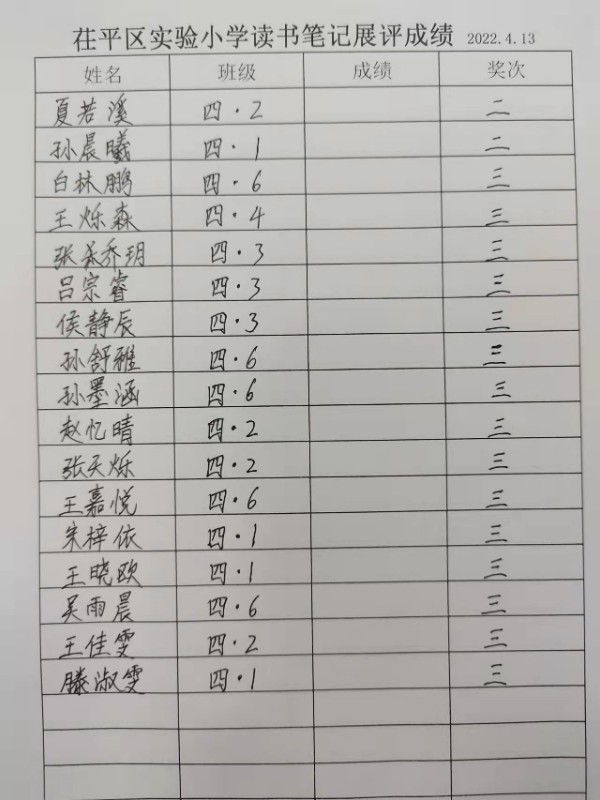 茌平区实验小学读书笔记展评成绩 2022.4.13
姓名 班级 成绩 奖次
夏若溪 四·2 二
孙晨曦 四·1 二
白林鹏 四·6 三
王烁森 四·4 三
张 乔玥 四·3 三
吕宗睿 四·3 三
侯静辰 四·3 三
孙舒雅 四·6 三
孙墨涵 四·6 三
赵忆晴 四·2 三
张天烁 四·2 三
王嘉悦 四·6 三
朱梓依 四·1 三
王晓欧 四·1 三
吴雨晨 四·6 三
王佳雯 四·2 三
滕淑雯 四·1 三